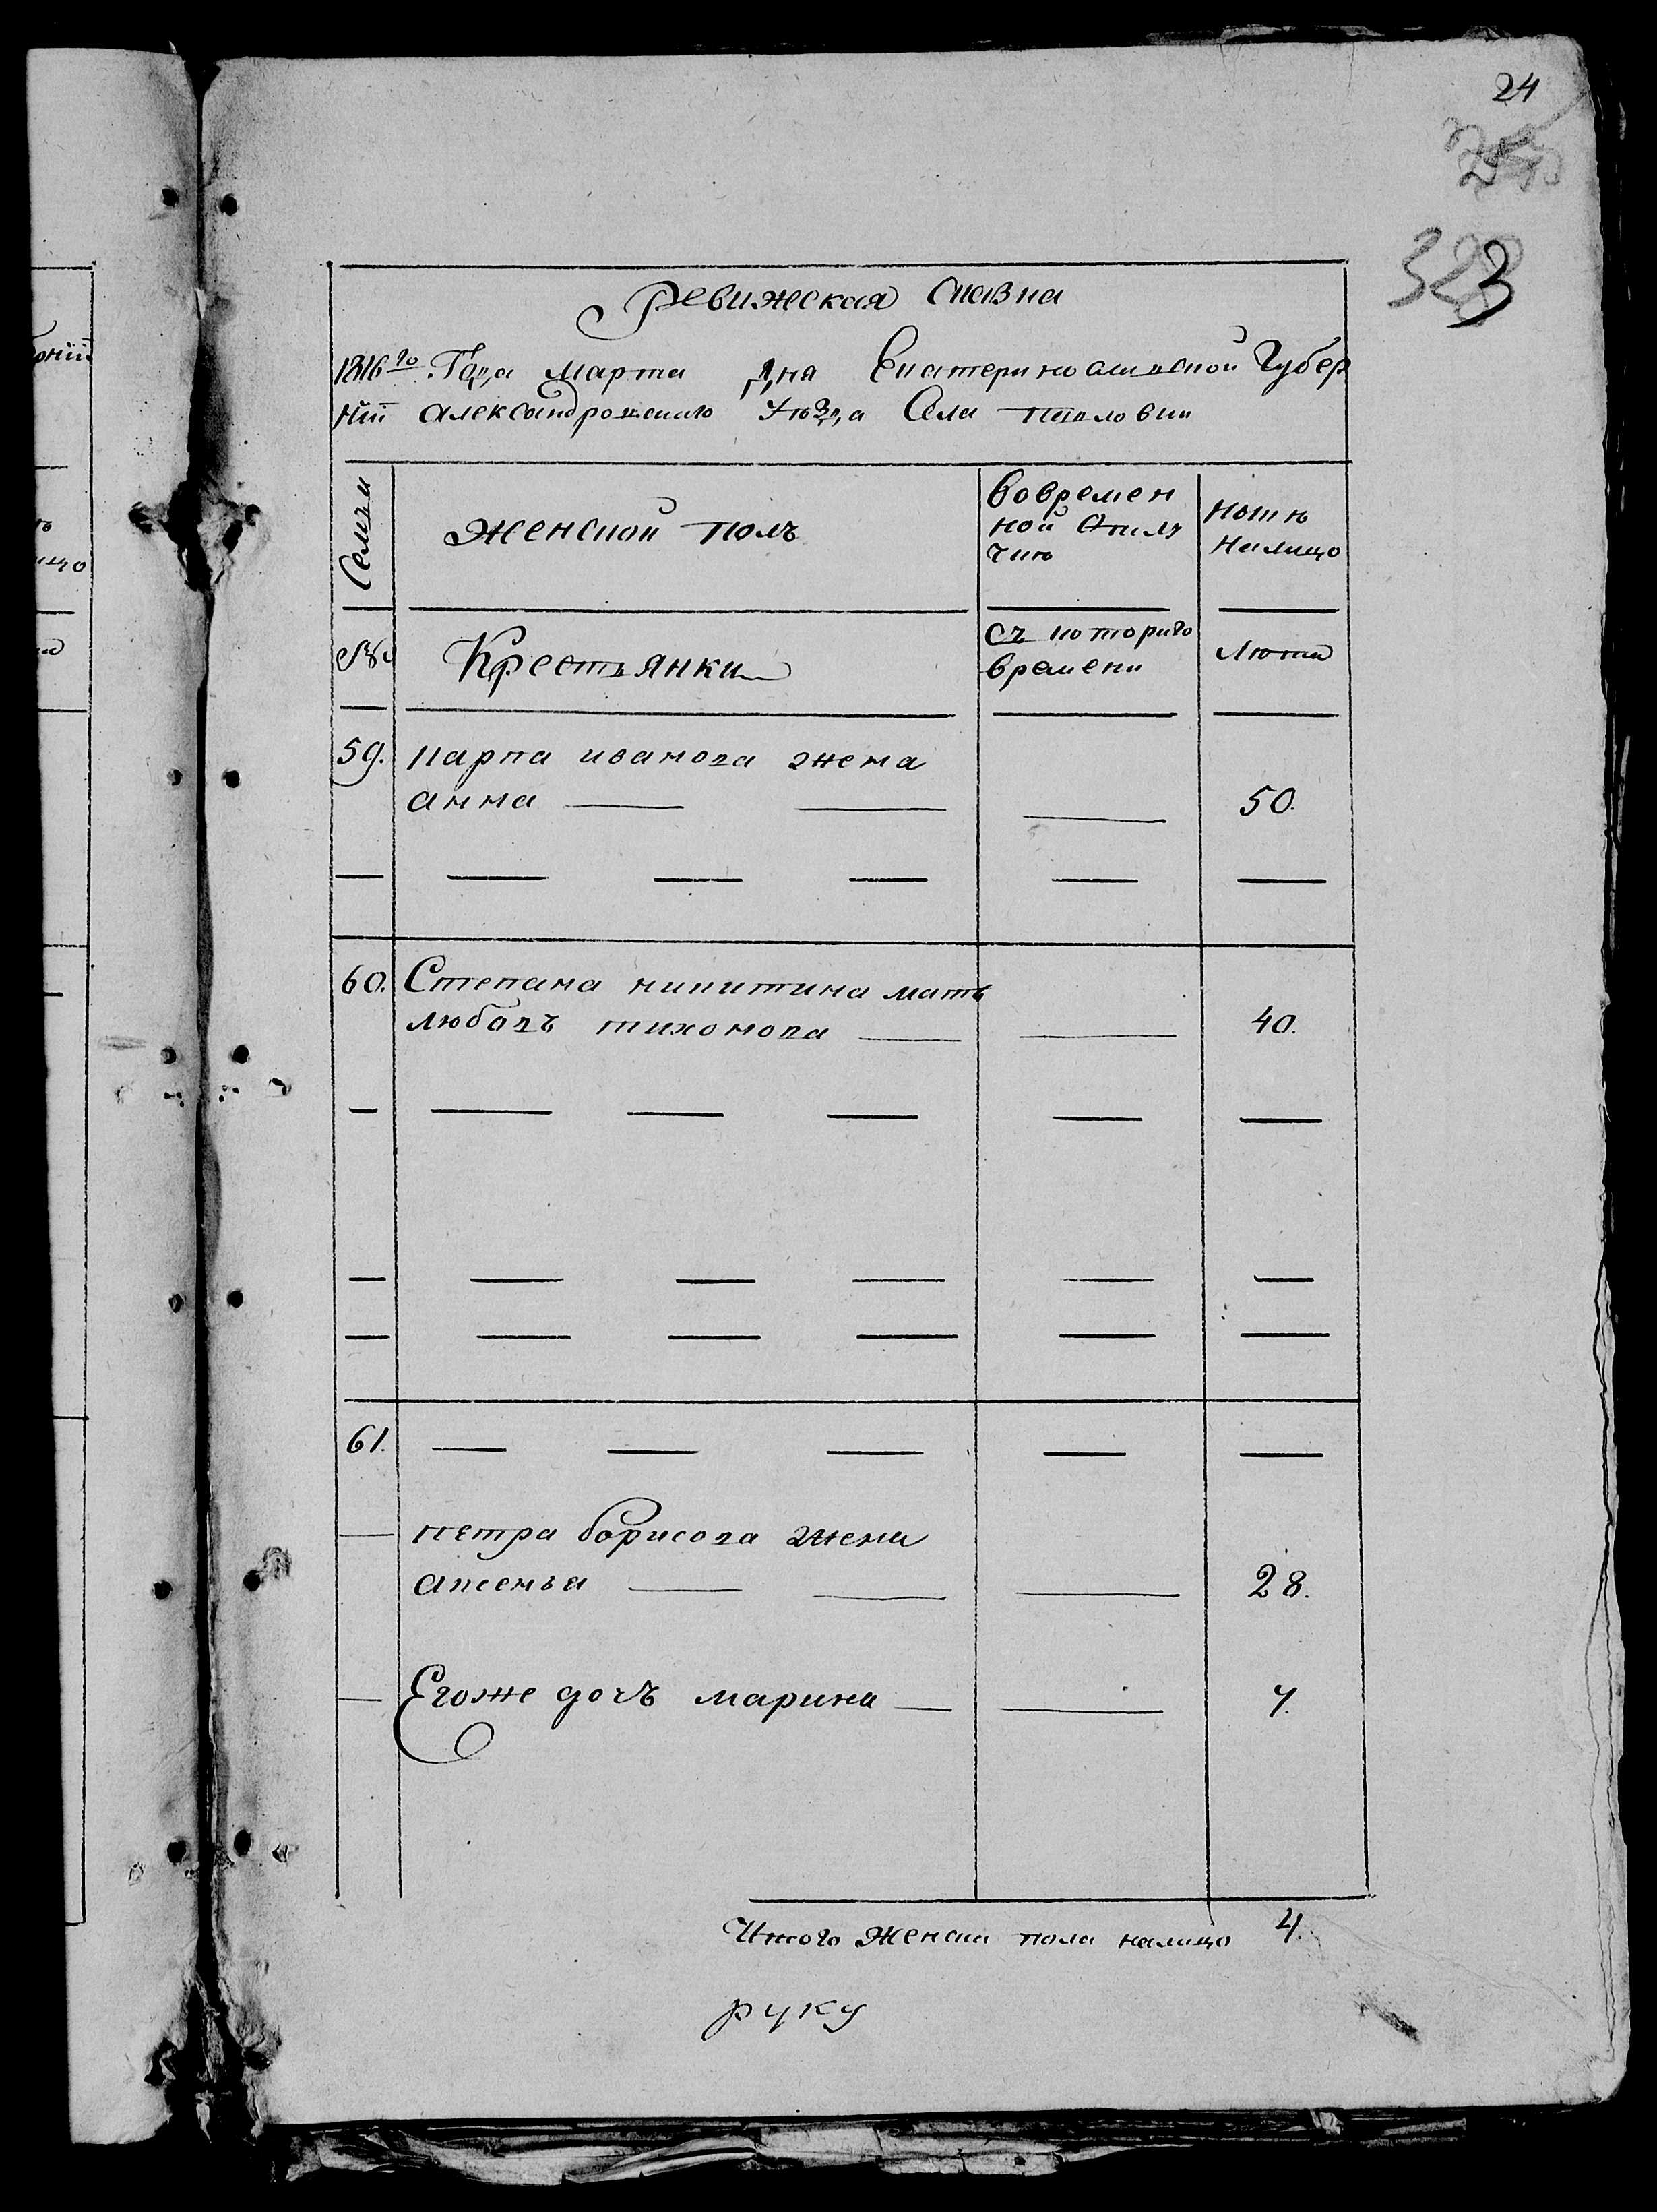 24
323
Ревижская Скавка
1816го Года марта дня Екатеринославской Губер
нїи александровскаго уѣзда Села павловки
Семьи
Женской полъ
Вовремен
ной Отлу
чкѣ
Нынѣ
налицо
№
Крестьянки
Съ котораго
времени
Лѣта
59. карпа иванова жена
анна 50.
60. Степана никитина мать
любовъ тихонова 40.
61.
петра борисова жена
аксенья 28.
Егоже дочъ марина 7.
Итого женска пола налицо 4.
руку